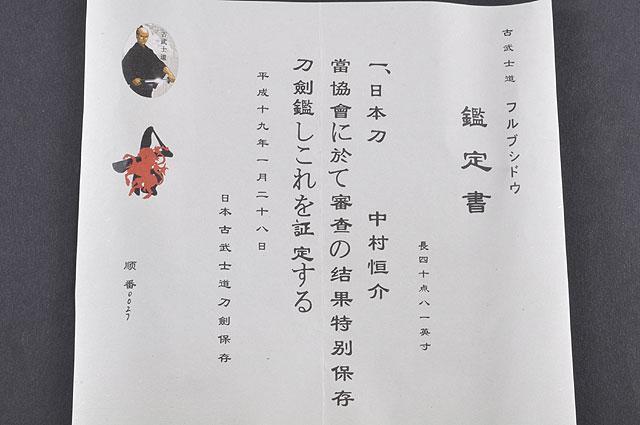 古武士道 フルブシドウ
鑑定書
長四十点八一英寸
一、日本刀 中村恒介
當協會に於て審査の结果特别保存
刀劍鑑しこれを証定する
平成十九年一月二十八日
日本古武士道刀劍保存
古武士道
順番0027